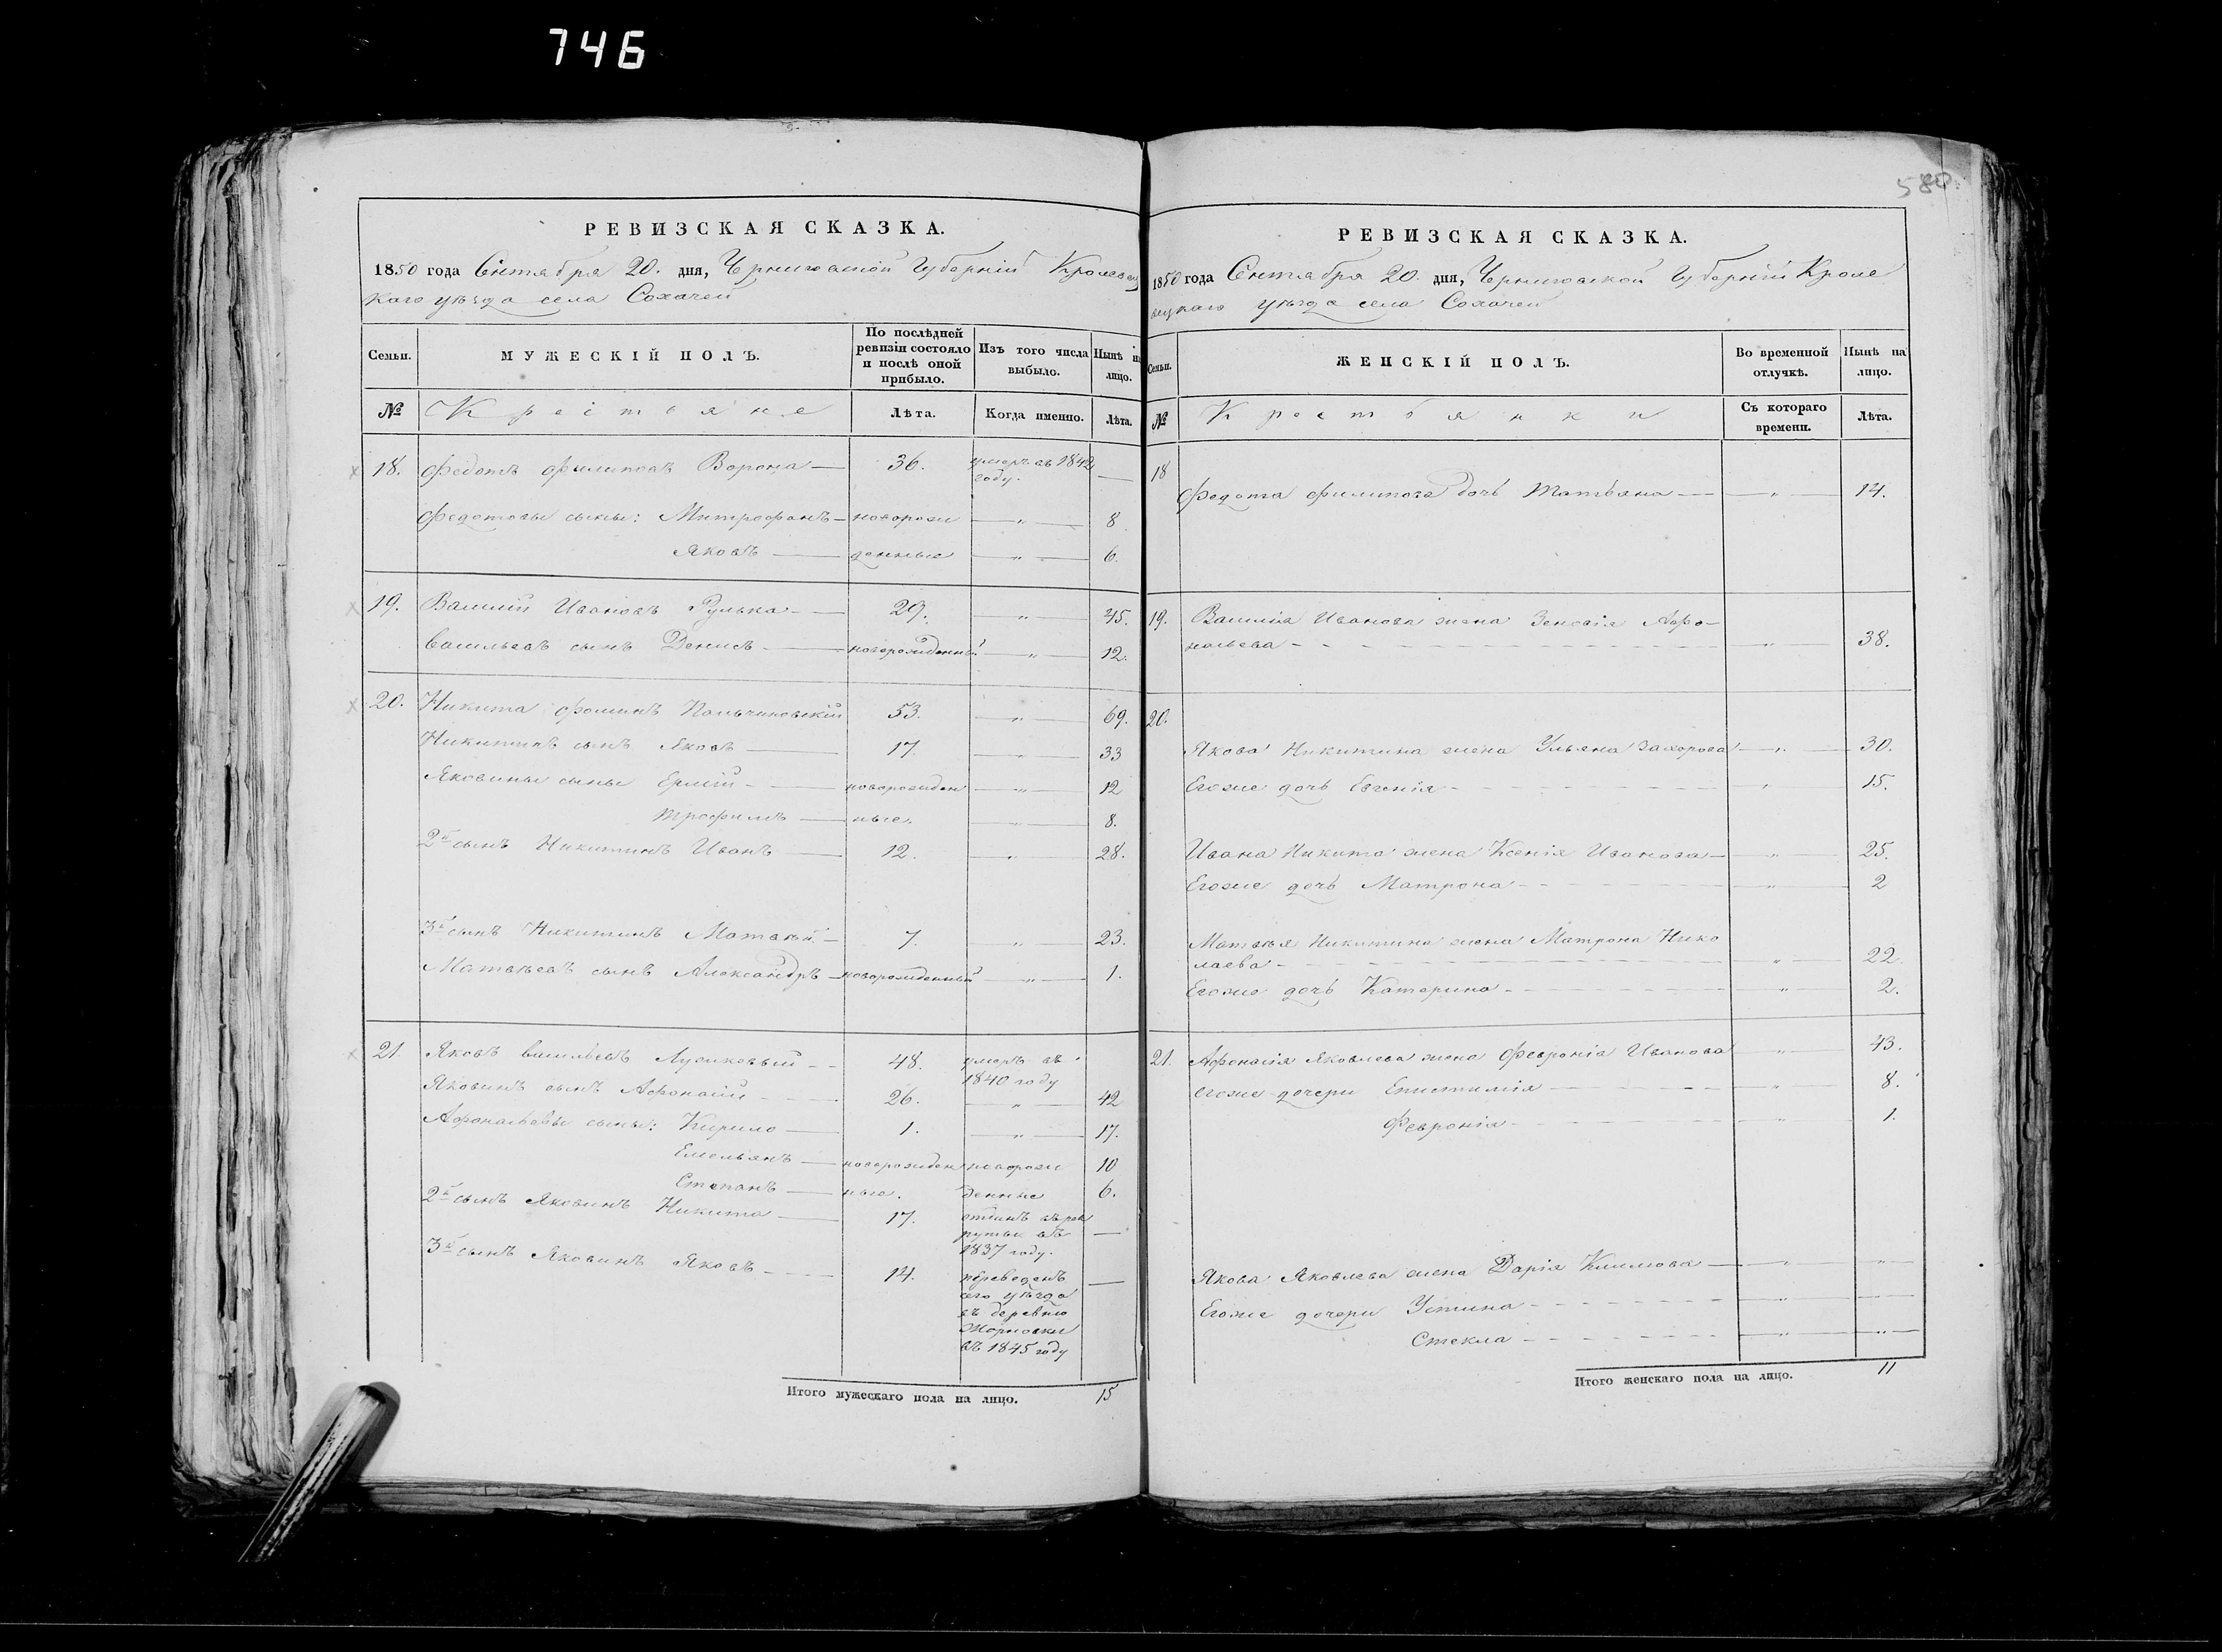 746
580
РЕВИЗСКАЯ СКАЗКА.
1850 года Сентября 20. дня, Черниговской Губерніи Кролевец
каго уѣзда села Сохачей
Семьи.
МУЖЕСКІЙ ПОЛЪ.
По послѣдней ревизіи состояло и послѣ оной прибыло.
Изъ того числа выбыло.
Нынѣ на лицо.
№
Крестьяне
Лѣта.
Когда именно.
Лѣта.
18. Федотъ Филиповъ Ворона — 36. умеръ въ 1842 —
году.
Федотовы сыны: Митрофанъ — новорож — „ — 8
Яковъ — денные — „ — 6.
19. Василий Ивановъ Рулька — 29. — „ — 45.
Васильевъ сынъ Денисъ — новорожденный — „ — 12.
20. Никита Фоминъ 53. — „ — 69.
Никитинъ сынъ Яковъ — 17. — „ — 33
Яковины сыны — новорожден — „ — 12
Трофимъ — ные. — „ — 8.
2й сынъ Никитинъ Иванъ — 12. — „ — 28.
3й сынъ Никитинъ Матвѣй — 7. — „ — 23.
Матвѣевъ сынъ Александръ — новорожденный — „ — 1.
21. Яковъ Васильевъ — 48. умеръ въ
1840 году
Яковинъ сынъ Афонасій — 26. — „ — 42
Афонасьевы сыны: Кирило — 1. — „ — 17.
Емельянъ — новорожден новорож 10
Степанъ — ные. денные 6.
2й сынъ Яковинъ Никита — 17. отданъ въ рек
руты въ —
1837 году.
3й сынъ Яковинъ Яковъ — 14. переведенъ —
сего уѣзда
въ деревню
въ 1845 году
Итого мужескаго пола на лицо. 15
РЕВИЗСКАЯ СКАЗКА.
1850 года Сентября 20. дня, Черниговской Губерніи Кроле
вецкаго уѣзда села Сохачей
Семьи.
ЖЕНСКІЙ ПОЛЪ.
Во временной отлучкѣ.
Нынѣ на лицо.
№
Крестьянки
Съ котораго времени.
Лѣта.
18
Федота Филипова дочь Татьяна — „ — 14.
19. Василія Иванова жена Зеновія Афо-
насьева — „ — 38.
20.
Якова Никитина жена Ульяна Захорова — „ — 30.
Егоже дочь Евгенія — „ — 15.
Ивана Никита жена Ксенія Иванова — „ — 25.
Егоже дочь Матрона — „ — 2
Матвѣя Никитина жена Матрона Нико
лаева — „ — 22.
Егоже дочь Катерина — „ — 2.
21. Афонасія Яковлева жена Февронія Иванова — „ — 43.
егоже дочери Епистимія — „ — 8.
Февронія — „ — 1.
Якова Яковлева жена Дарія Климова — „ — „ —
Егоже дочери Устина — „ —
Стекла — „ — „ —
Итого женскаго пола на лицо. 11